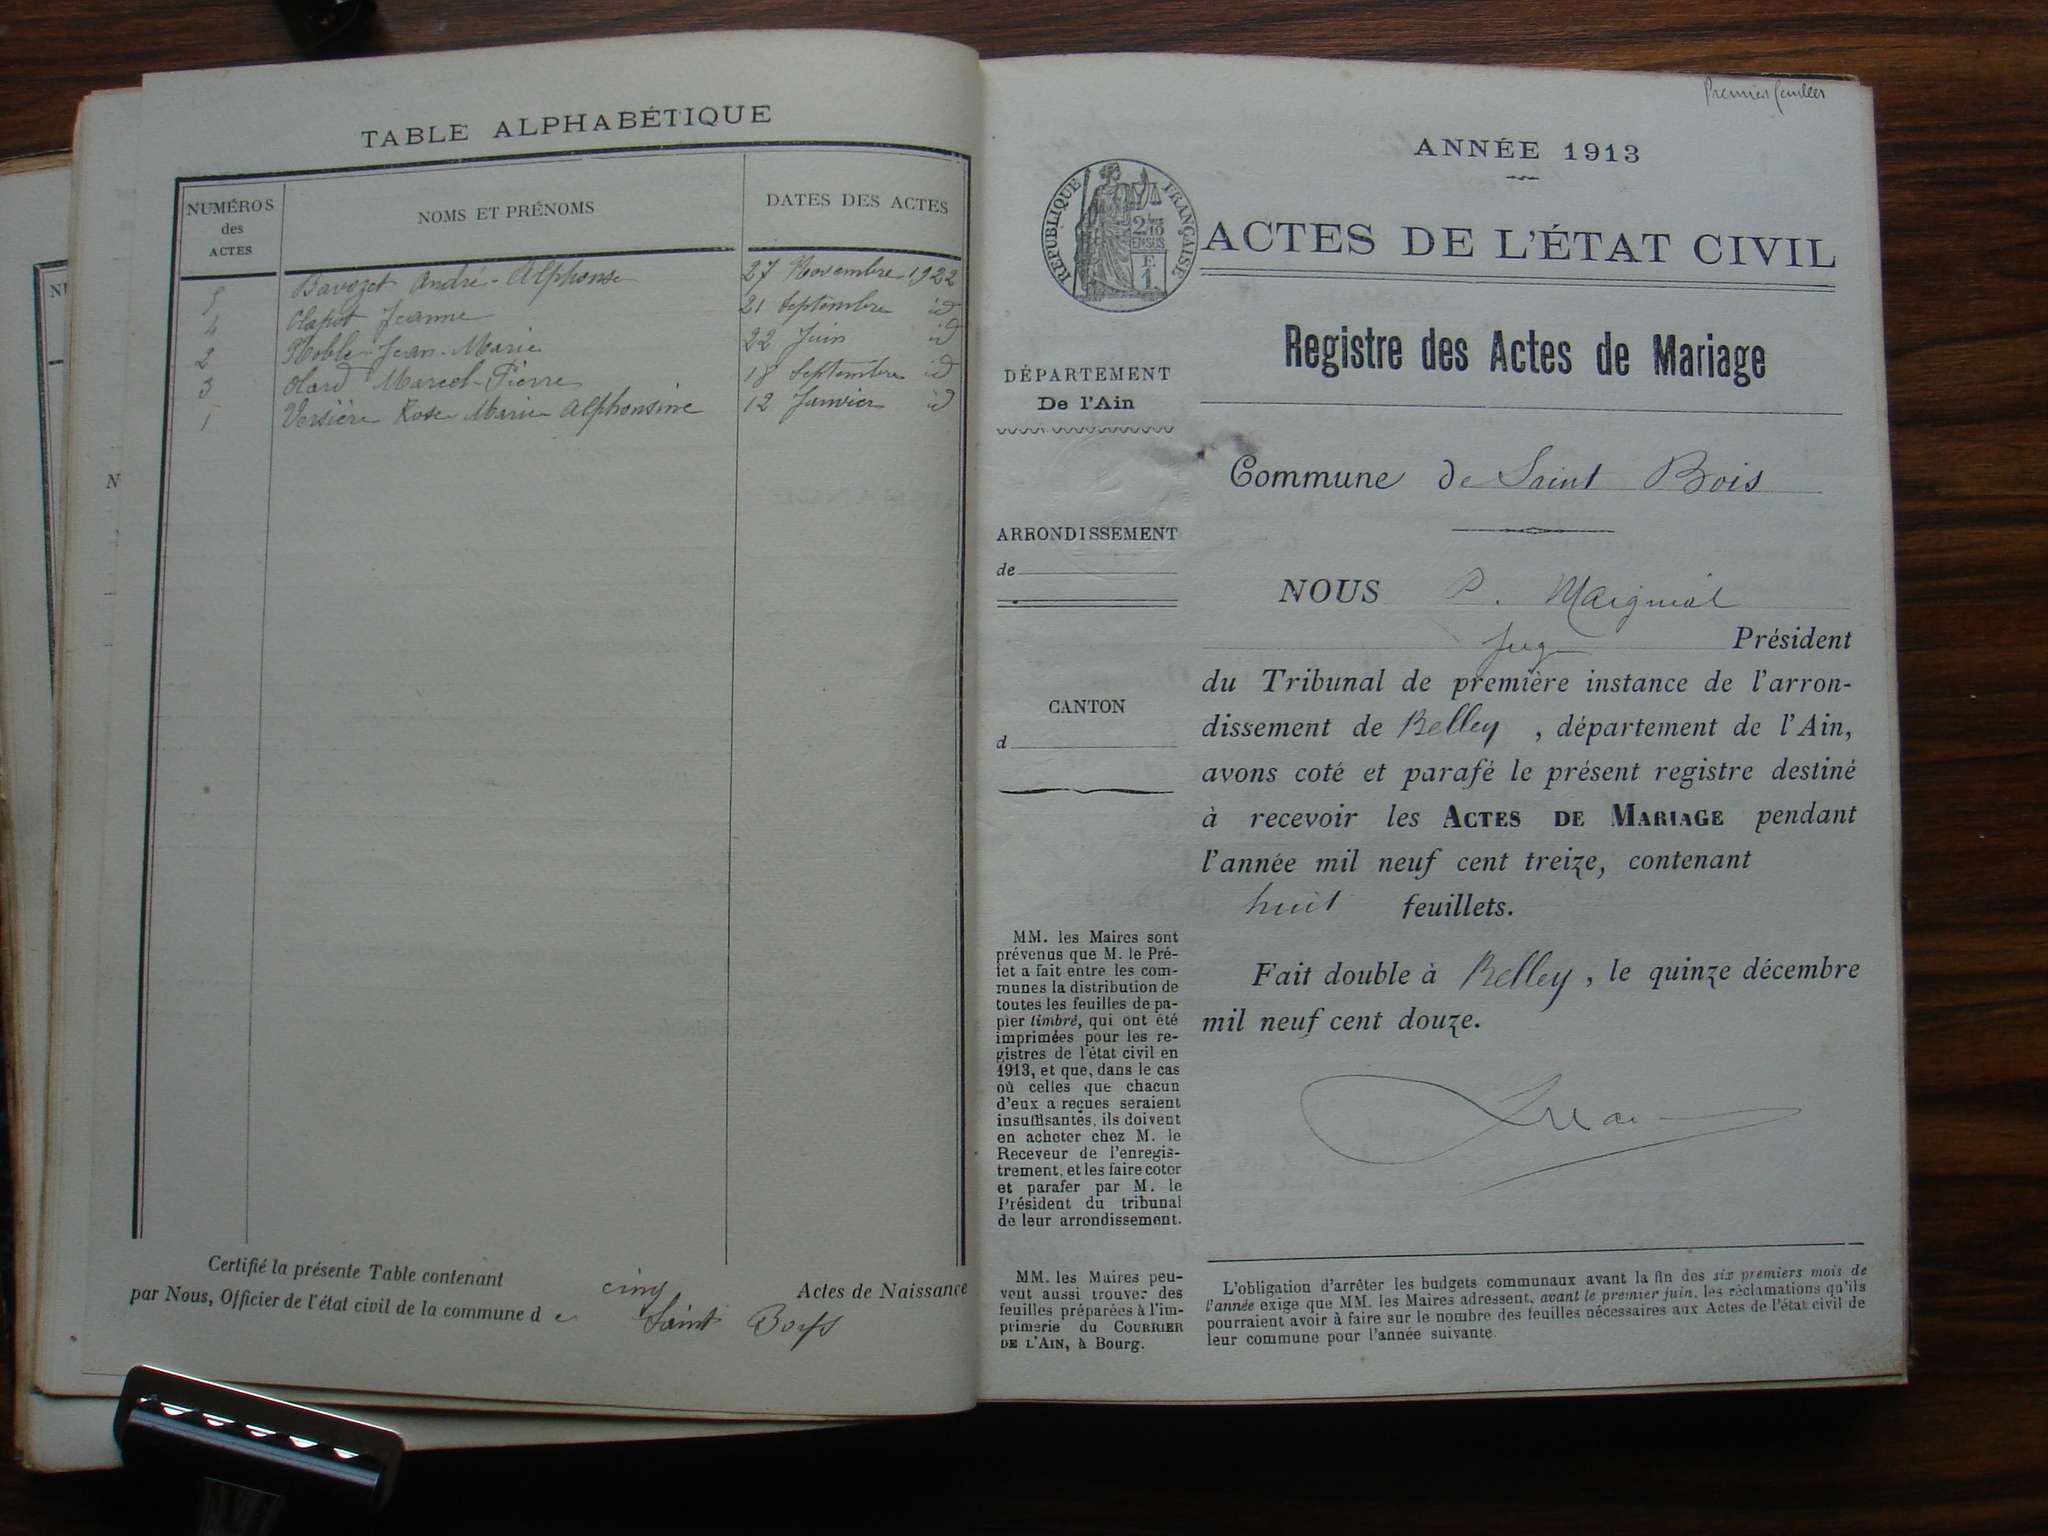 TABLE ALPHABÉTIQUE
NUMÉROS
des
ACTES
NOMS ET PRÉNOMS
DATES DES ACTES
5 Bavozet André-Alphonse 27 Novembre 1922
4 Clapot Jeanne 21 Septembre id
2 Noble Jean-Marie 22 Juin id
3 Olard Marcel-Pierre 18 Septembre id
1 Versière Rose Marie Alphonsine 12 Janvier id
Certifié la présente Table contenant cinq Actes de Naissance
par Nous, Officier de l'état civil de la commune d e Saint Boys
Premier feuillet
ANNÉE 1913
RÉPUBLIQUE FRANÇAISE
ACTES DE L'ÉTAT CIVIL
Registre des Actes de Mariage
DÉPARTEMENT
De l'Ain
Commune de Saint Bois
ARRONDISSEMENT
de
NOUS P. Maignial
Juge Président
du Tribunal de première instance de l'arron-
dissement de Belley, département de l'Ain,
avons coté et parafé le présent registre destiné
à recevoir les ACTES DE MARIAGE pendant
l'année mil neuf cent treize, contenant
huit feuillets.
Fait double à Belley, le quinze décembre
mil neuf cent douze.
CANTON
d
MM. les Maires sont
prévenus que M. le Pré-
fet a fait entre les com-
munes la distribution de
toutes les feuilles de pa-
pier timbré, qui ont été
imprimées pour les re-
gistres de l'état civil en
1913, et que, dans le cas
où celles que chacun
d'eux a reçues seraient
insuffisantes, ils doivent
en acheter chez M. le
Receveur de l'enregis-
trement, et les faire coter
et parafer par M. le
Président du tribunal
de leur arrondissement.
MM. les Maires peu-
vent aussi trouver des
feuilles préparées à l'im-
primerie du COURRIER
DE L'AIN, à Bourg.
L'obligation d'arrêter les budgets communaux avant la fin des six premiers mois de
l'année exige que MM. les Maires adressent, avant le premier juin, les réclamations qu'ils
pourraient avoir à faire sur le nombre des feuilles nécessaires aux Actes de l'état civil de
leur commune pour l'année suivante.